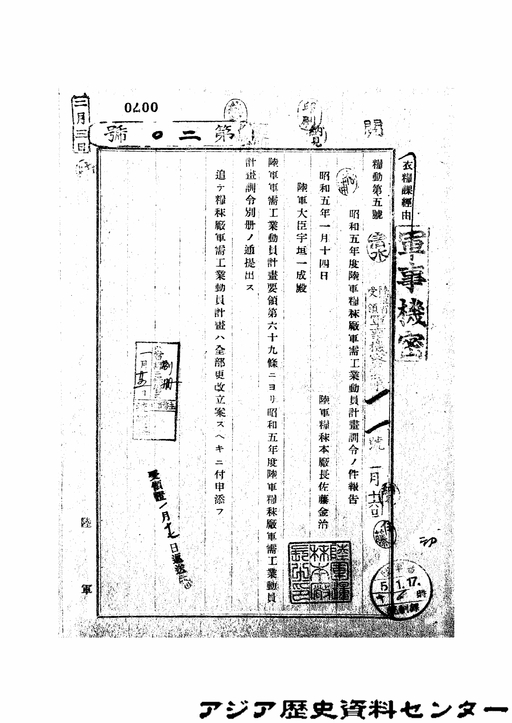 二月三日
0070
第二〇號
衣糧課經由
軍事機密
糧動第五號
昭和五年度陸軍糧秣廠軍需工業動員計畫訓令ノ件報告
昭和五年一月十四日
陸軍糧秣本廠長佐藤金治
陸軍大臣宇垣一成殿
陸軍軍需工業動員計畫要領第六十九條ニヨリ昭和五年度陸軍糧秣廠軍需工業動員
計畫訓令別册ノ通提出ス
追テ糧秣廠軍需工業動員計畫ハ全部更改立案スヘキニ付申添フ
陸軍糧秣本廠長之印
5.1.17.
受領證一月十七日返送
陸軍
アジア歴史資料センター